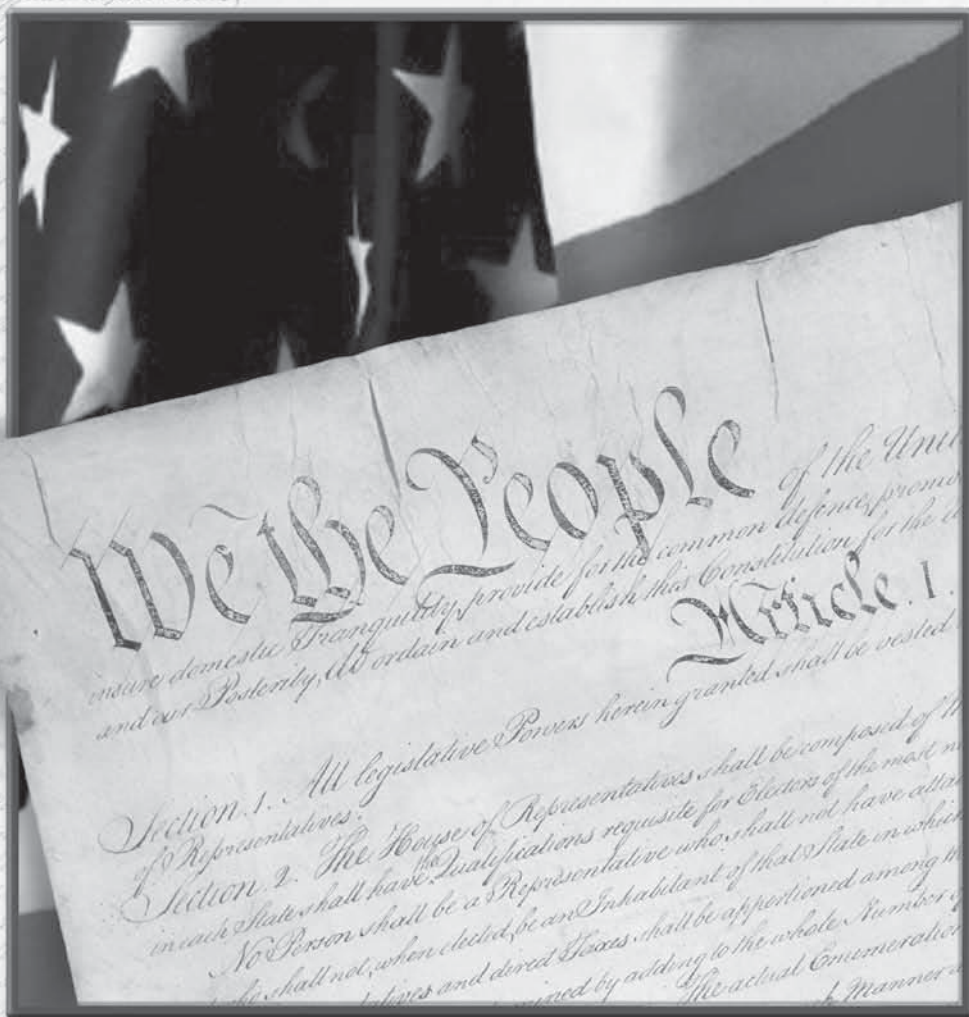 We the People of the Uni
insure domestic Tranquility, provide for the common defence, promo
and our Posterity, do ordain and establish this Constitution for the
Article. I.
Section. 1. All legislative Powers herein granted shall be vested
of Representatives.
Section. 2. The House of Representatives shall be composed of M
in each State shall have the Qualifications requisite for Electors of the most n
No Person shall be a Representative who shall not have attai
who shall not, when elected, be an Inhabitant of that State in which
and direct Taxes shall be apportioned among th
by adding to the whole Number
The actual Enumeration
Manner